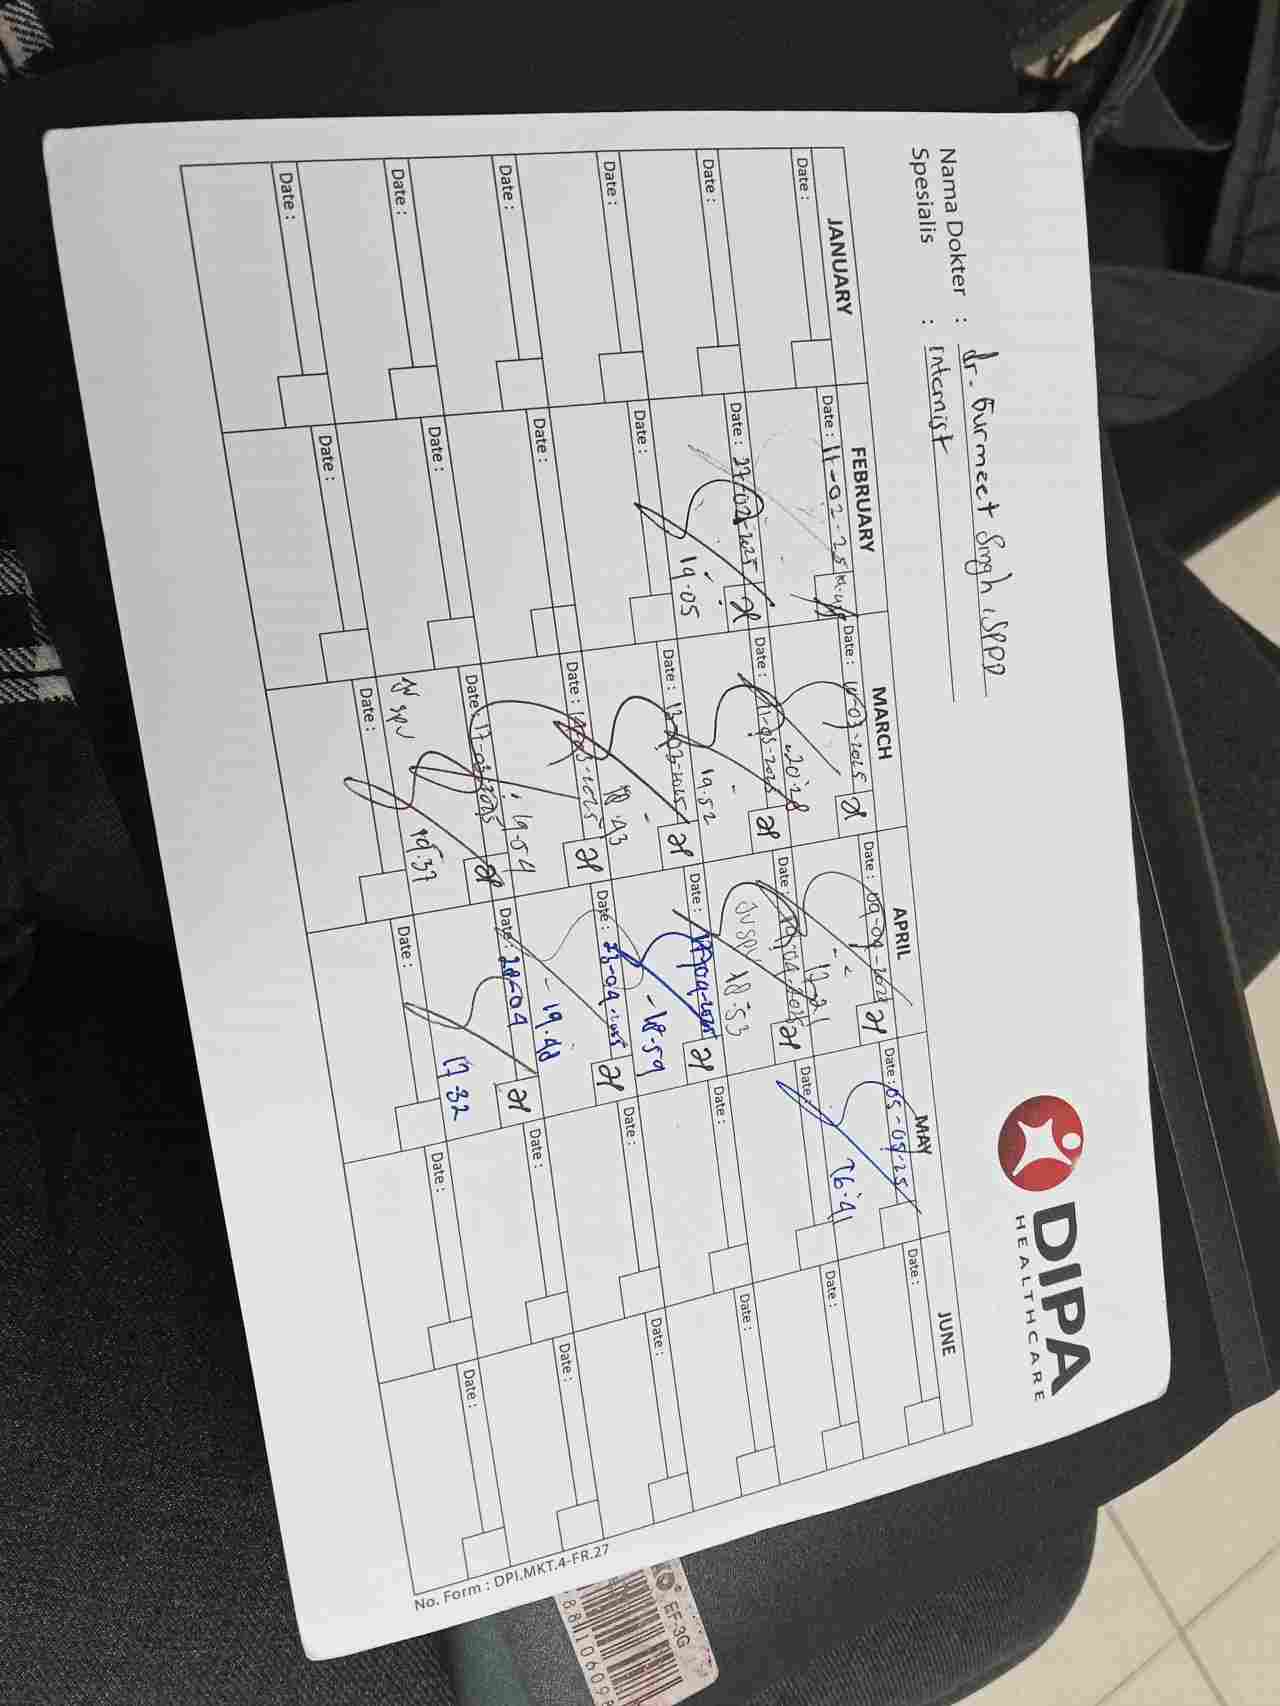 DIPA
HEALTHCARE
Nama Dokter : dr. Gurmeet Singh, SPPD
Spesialis : Internist
JANUARY FEBRUARY MARCH APRIL MAY JUNE
Date : Date : 11-02-25 Date : Date : Date : 05-05-25 Date :
16.41
Date : Date : 27/02-2025 Date : 11-03-2025 Date : Date : Date :
19.05 19.52 18.53
JV SPV
Date : Date : Date : 13-03-2025 Date : 17/04-2025 Date : Date :
18.43 - 18.59
Date : Date : Date : Date : 23-04-2025 Date : Date :
19.54 - 19.48
Date : Date : Date : 17-03-2025 Date : 28-04 Date : Date :
JV SPV 19.37 17.32
Date : Date : Date : Date : Date : Date :
No. Form : DPI.MKT.4-FR.27
EF-3G